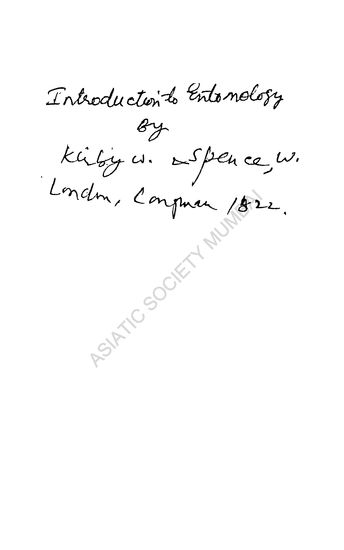 Introduction to Entomology
By
Kirby W. & Spence, W.
London, Longman 1822.
ASIATIC SOCIETY MUMBAI